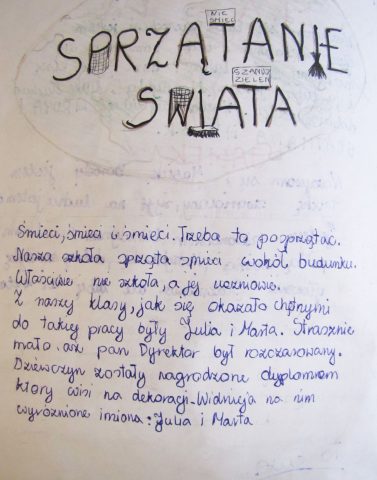 NIE
ŚMIEĆ
SPRZĄTANIE
SZANUJ
ZIELEŃ
ŚWIATA
Śmieci, śmieci i śmieci. Trzeba to posprzątać.
Nasza szkoła sprząta śmieci wokół budunku.
Właściwie nie szkoła, a jej uczniowie.
Z naszy klasy, jak się okazało chętnymi
do takiej pracy były Julia i Marta. Strasznie
mało. aż pan Dyrektor był rozczarowany.
Dziewczyn zostały nagrodzone dyplomem
który wisi na dekoracji. Widnieją na nim
wyróżnione imiona: Julia i Marta